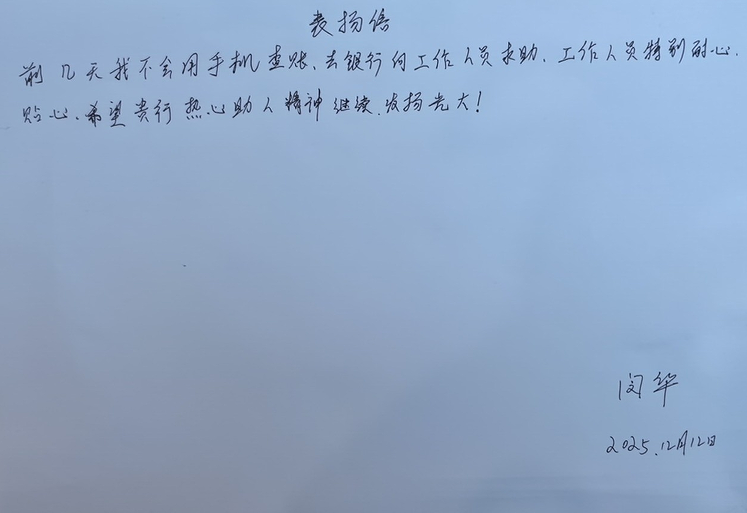 表扬信
前几天我不会用手机查账、去银行向工作人员求助、工作人员特别耐心、
贴心、希望贵行热心助人精神继续、发扬光大!
闵华
2025.12月12日